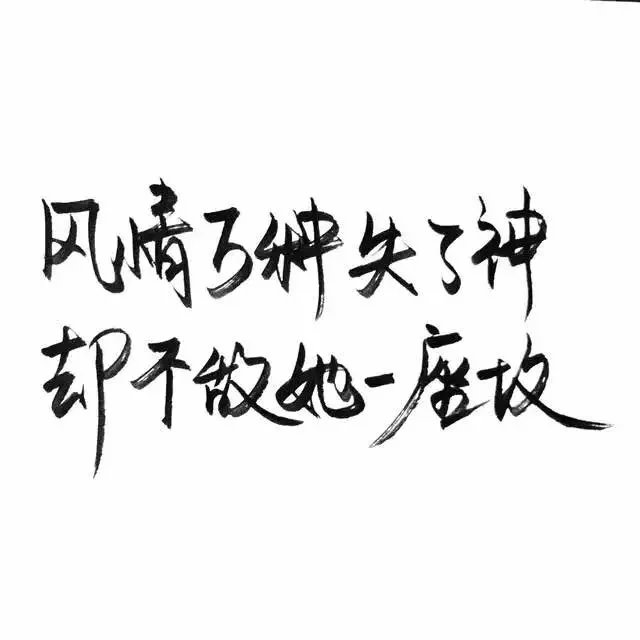 风情万种失了神
却不敌她一座坟